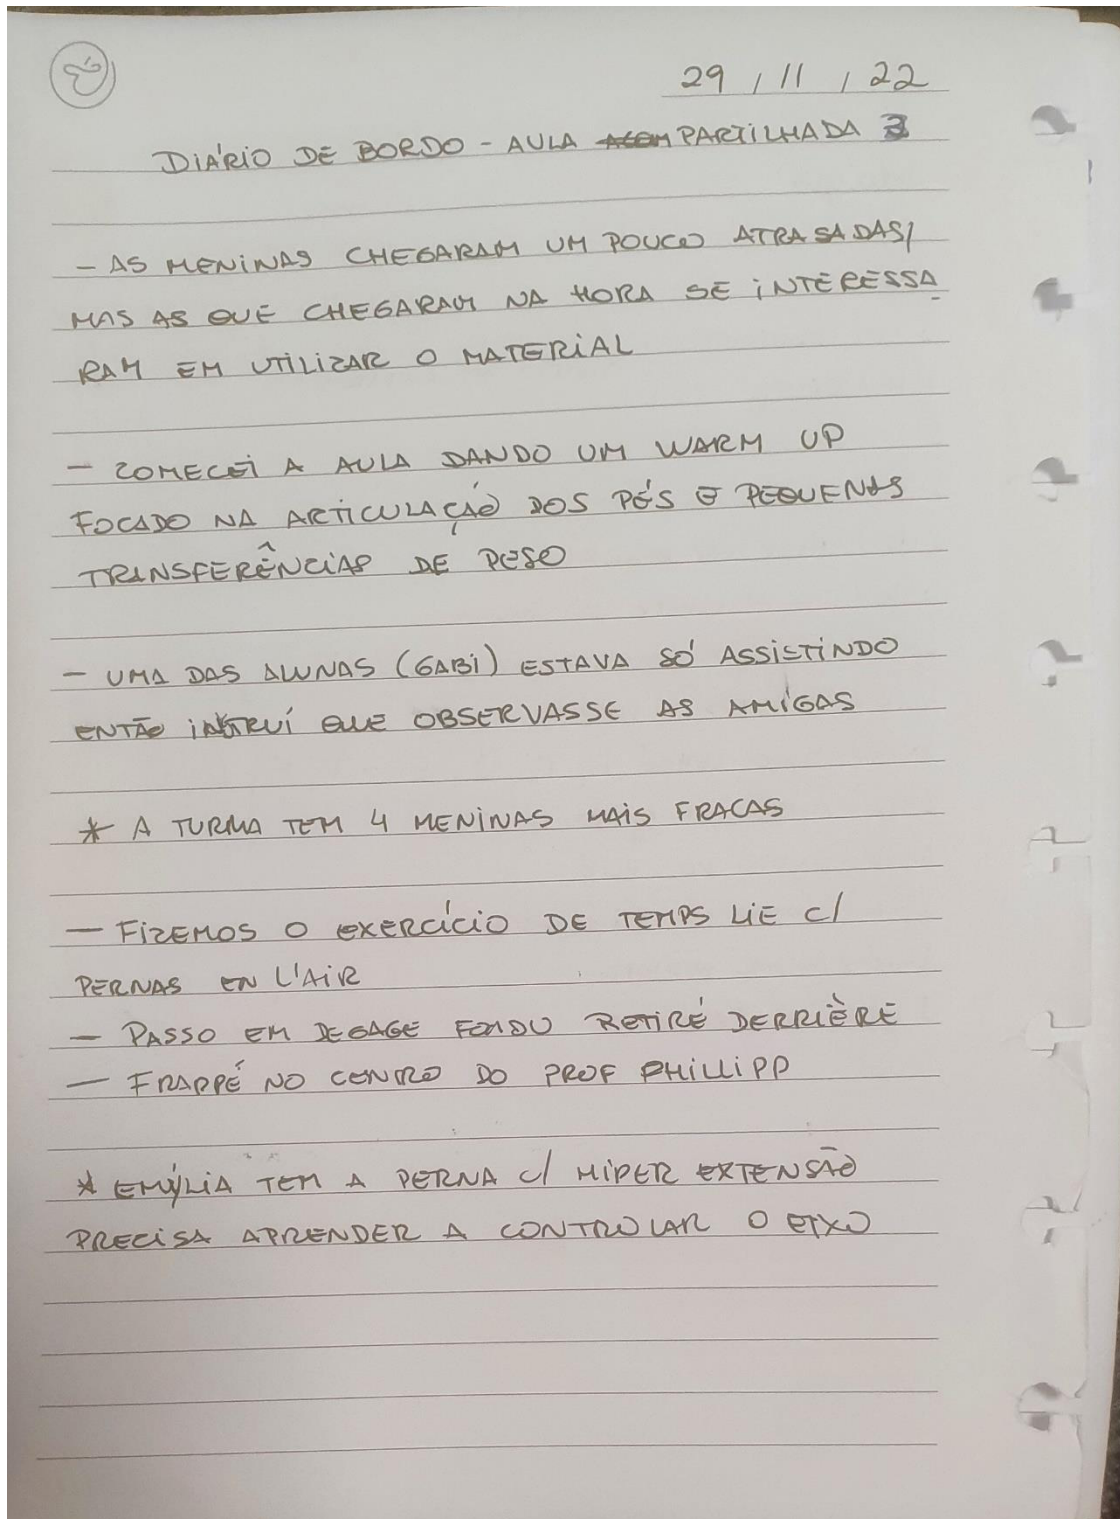 29 / 11 / 22
DIÁRIO DE BORDO - AULA PARTILHADA 3
- AS MENINAS CHEGARAM UM POUCO ATRASADAS,
MAS AS QUE CHEGARAM NA HORA SE INTERESSA
RAM EM UTILIZAR O MATERIAL
- COMECEI A AULA DANDO UM WARM UP
FOCADO NA ARTICULAÇÃO DOS PÉS E PEQUENAS
TRANSFERÊNCIAS DE PESO
- UMA DAS ALUNAS (GABI) ESTAVA SÓ ASSISTINDO
ENTÃO INSTRUÍ QUE OBSERVASSE AS AMIGAS
* A TURMA TEM 4 MENINAS MAIS FRACAS
- FIZEMOS O EXERCÍCIO DE TEMPS LIE C/
PERNAS EN L'AIR
- PASSO EM DEGAGE FONDU RETIRÉ DERRIÈRE
- FRAPPÉ NO CENTRO DO PROF PHILLIPP
* EMÝLIA TEM A PERNA C/ HIPER EXTENSÃO
PRECISA APRENDER A CONTROLAR O EIXO